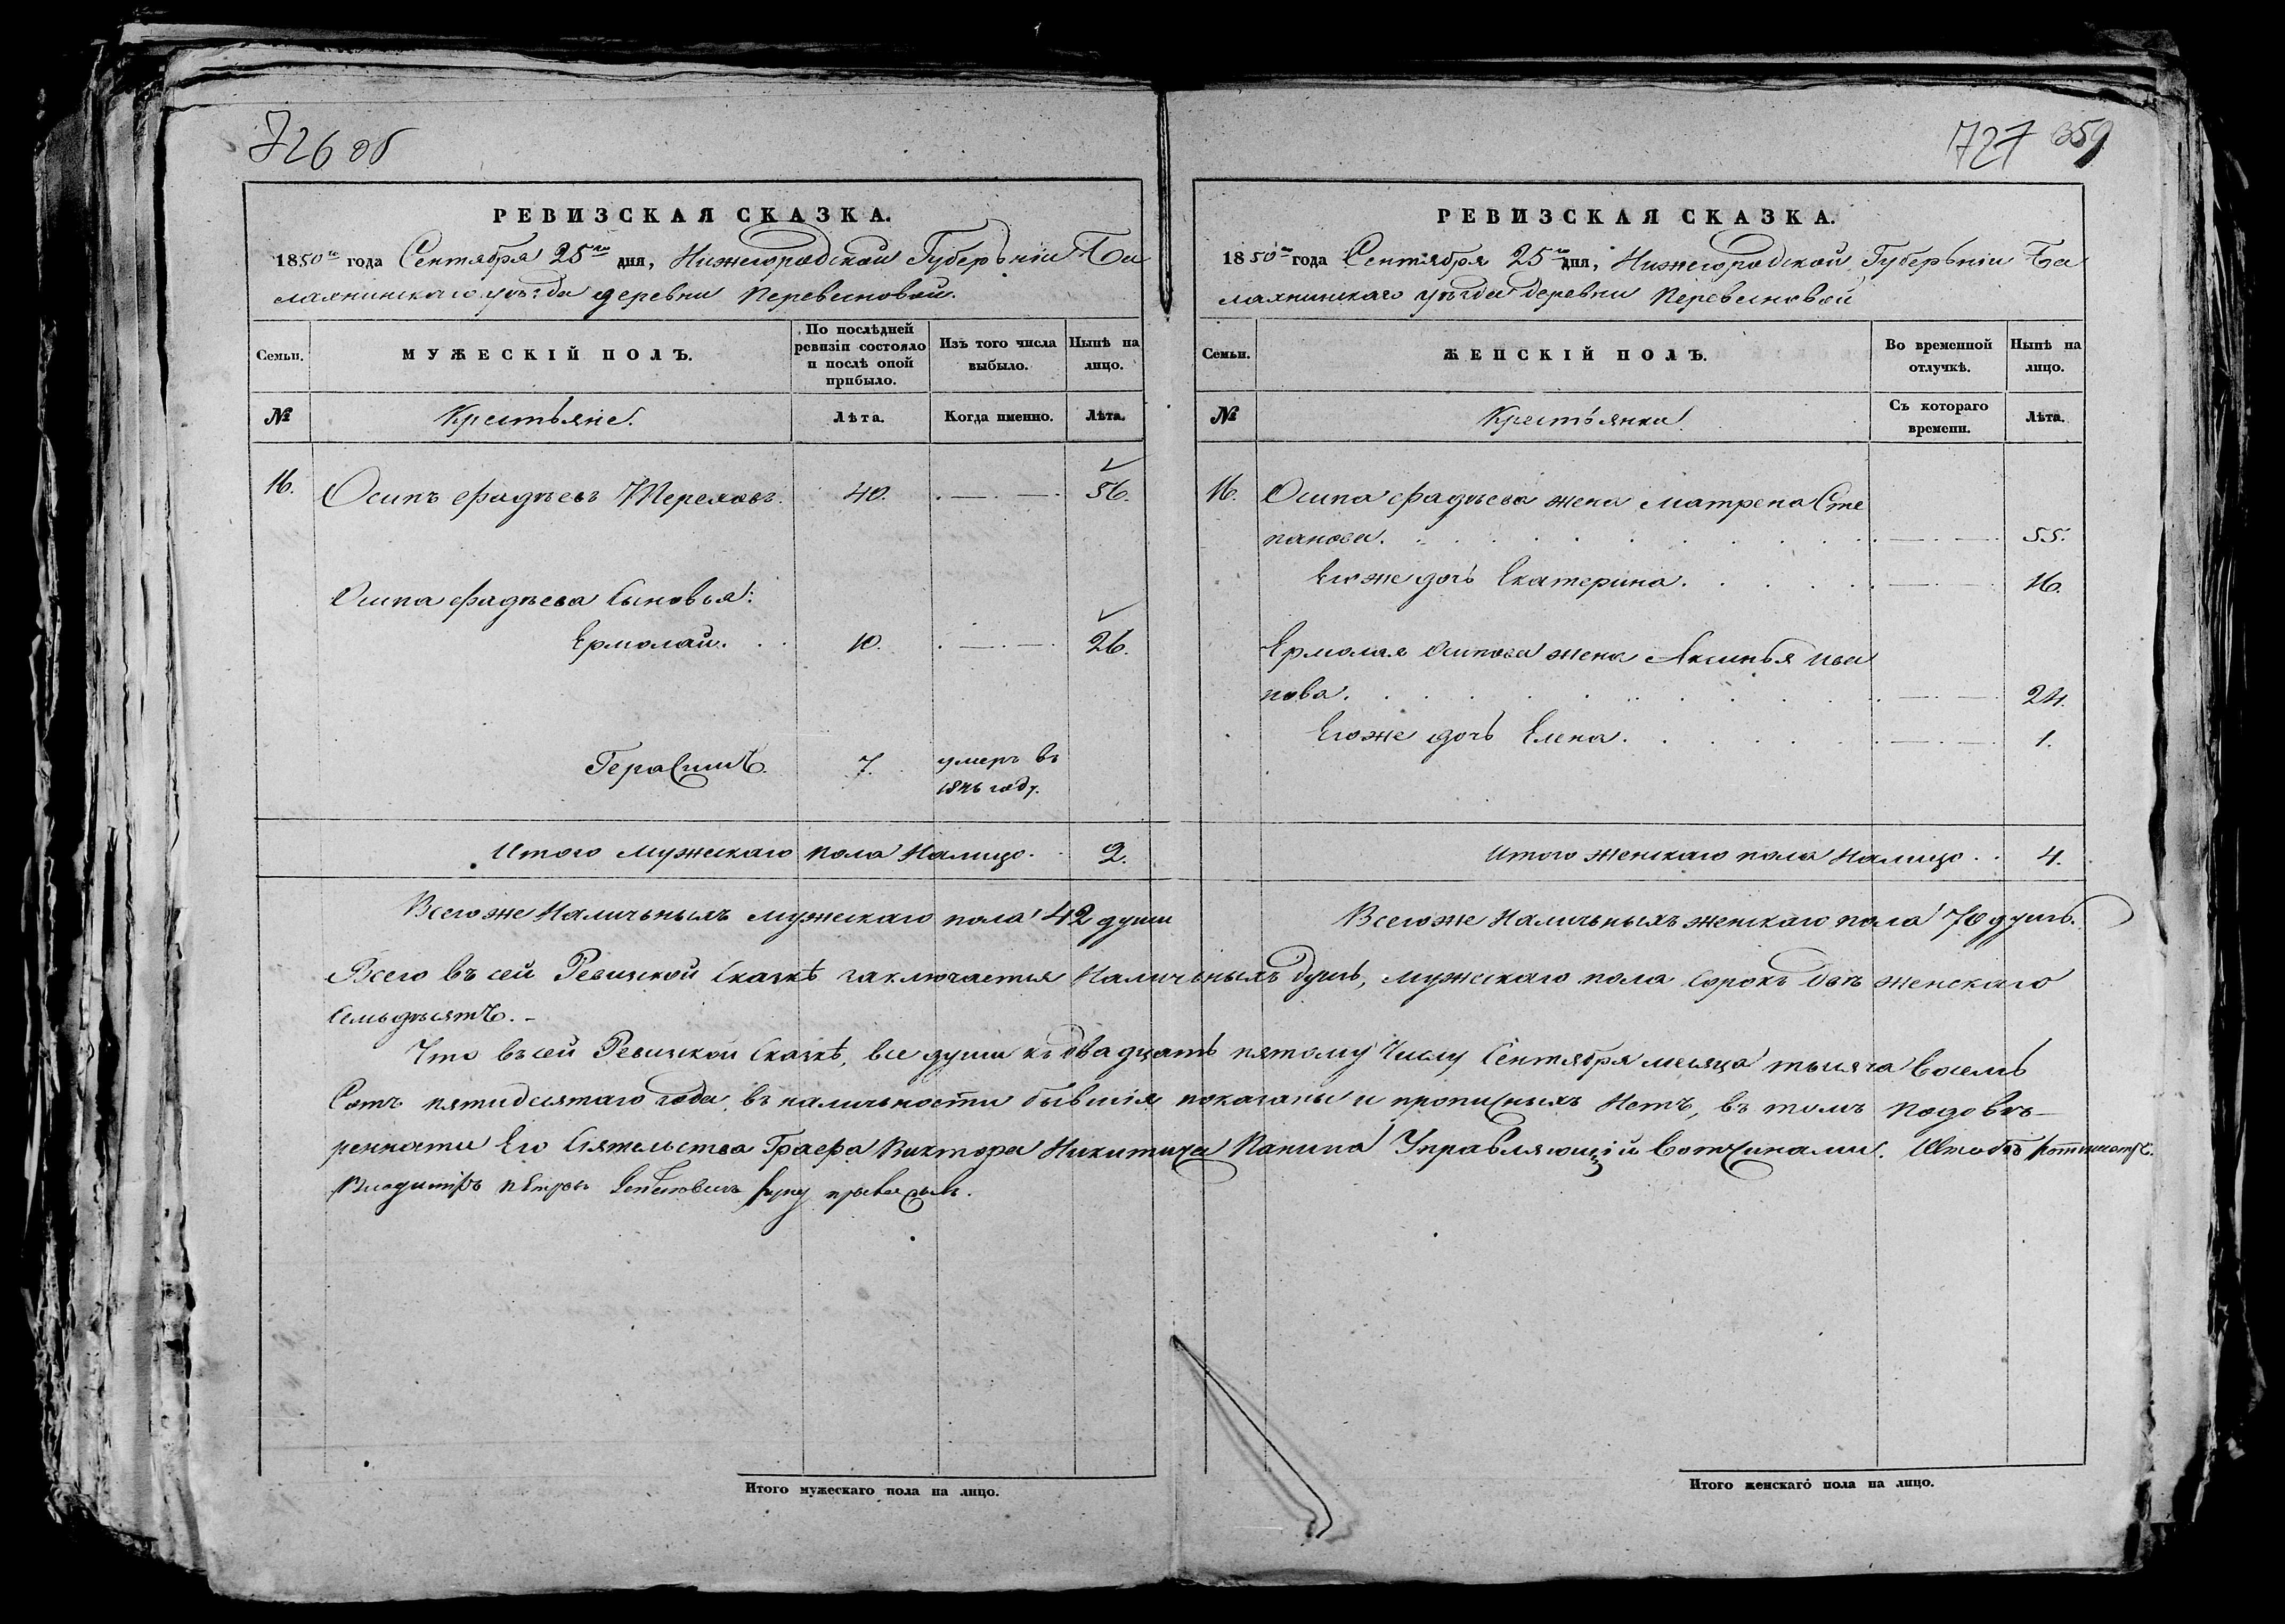 726 об
РЕВИЗСКАЯ СКАЗКА.
1850го года Сентября 25го дня, Нижегородской Губерьнiи Ба
лахнинскаго уѣзда деревни Перевесновой.
Семьи.
МУЖЕСКІЙ ПОЛЪ.
По послѣдней ревизіи состояло и послѣ оной прибыло.
Изъ того числа выбыло.
Нынѣ на лицо.
№
Крестьяне.
Лѣта.
Когда именно.
Лѣта.
16.
Осипъ Фадѣевъ Тереховъ.
40.
56.
Осипа Фадѣева Сыновья:
Ермолай.
10.
26.
Герасимъ.
7.
умеръ въ
1846 году.
Итого мужескаго пола Налицо.
2.
Всего же Наличьныхъ мужескаго пола 42 души
727 359
РЕВИЗСКАЯ СКАЗКА.
1850го года Сентября 25го дня, Нижегородской Губерьнiи Ба
лахнинскаго уѣзда деревни Перевесновой
Семьи.
ЖЕНСКІЙ ПОЛЪ.
Во временной отлучкѣ.
Нынѣ на лицо.
№
Крестьянки.
Съ котораго времени.
Лѣта.
16.
Осипа Фадѣева жена Матрена Сте
панова.
55.
Его же дочь Екатерина.
16.
Ермолая Осипова жена Аксинья Ива
нова.
24.
Его же дочь Елена.
1.
Итого женскаго пола Налицо.
4.
Всего же Наличьныхъ женскаго пола 70 душъ.
Всего въ сей Ревизской Сказкѣ заключается Наличьныхъ душъ, мужескаго пола сорокъ двѣ женскаго
Семьдѣсятъ.
Что въ сей Ревизской Сказкѣ, все души къ двадцать пятому Числу Сентября месяца тысяча восемь
Сотъ пятидесятаго года, въ наличьности бывшія показаны и прописныхъ Нетъ, въ томъ по довѣ-
ренности Его Сіятельства Графа Виктора Никитича Панина Управляющій Вотчинами.
Владимiръ Петровъ руку приложилъ.
Итого мужескаго пола на лицо.
Итого женскаго пола на лицо.